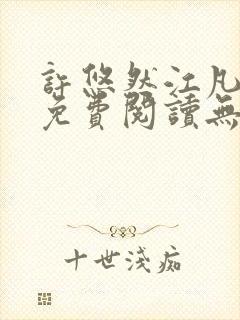 許悠然江凡
免費閱讀無
十世淺痴